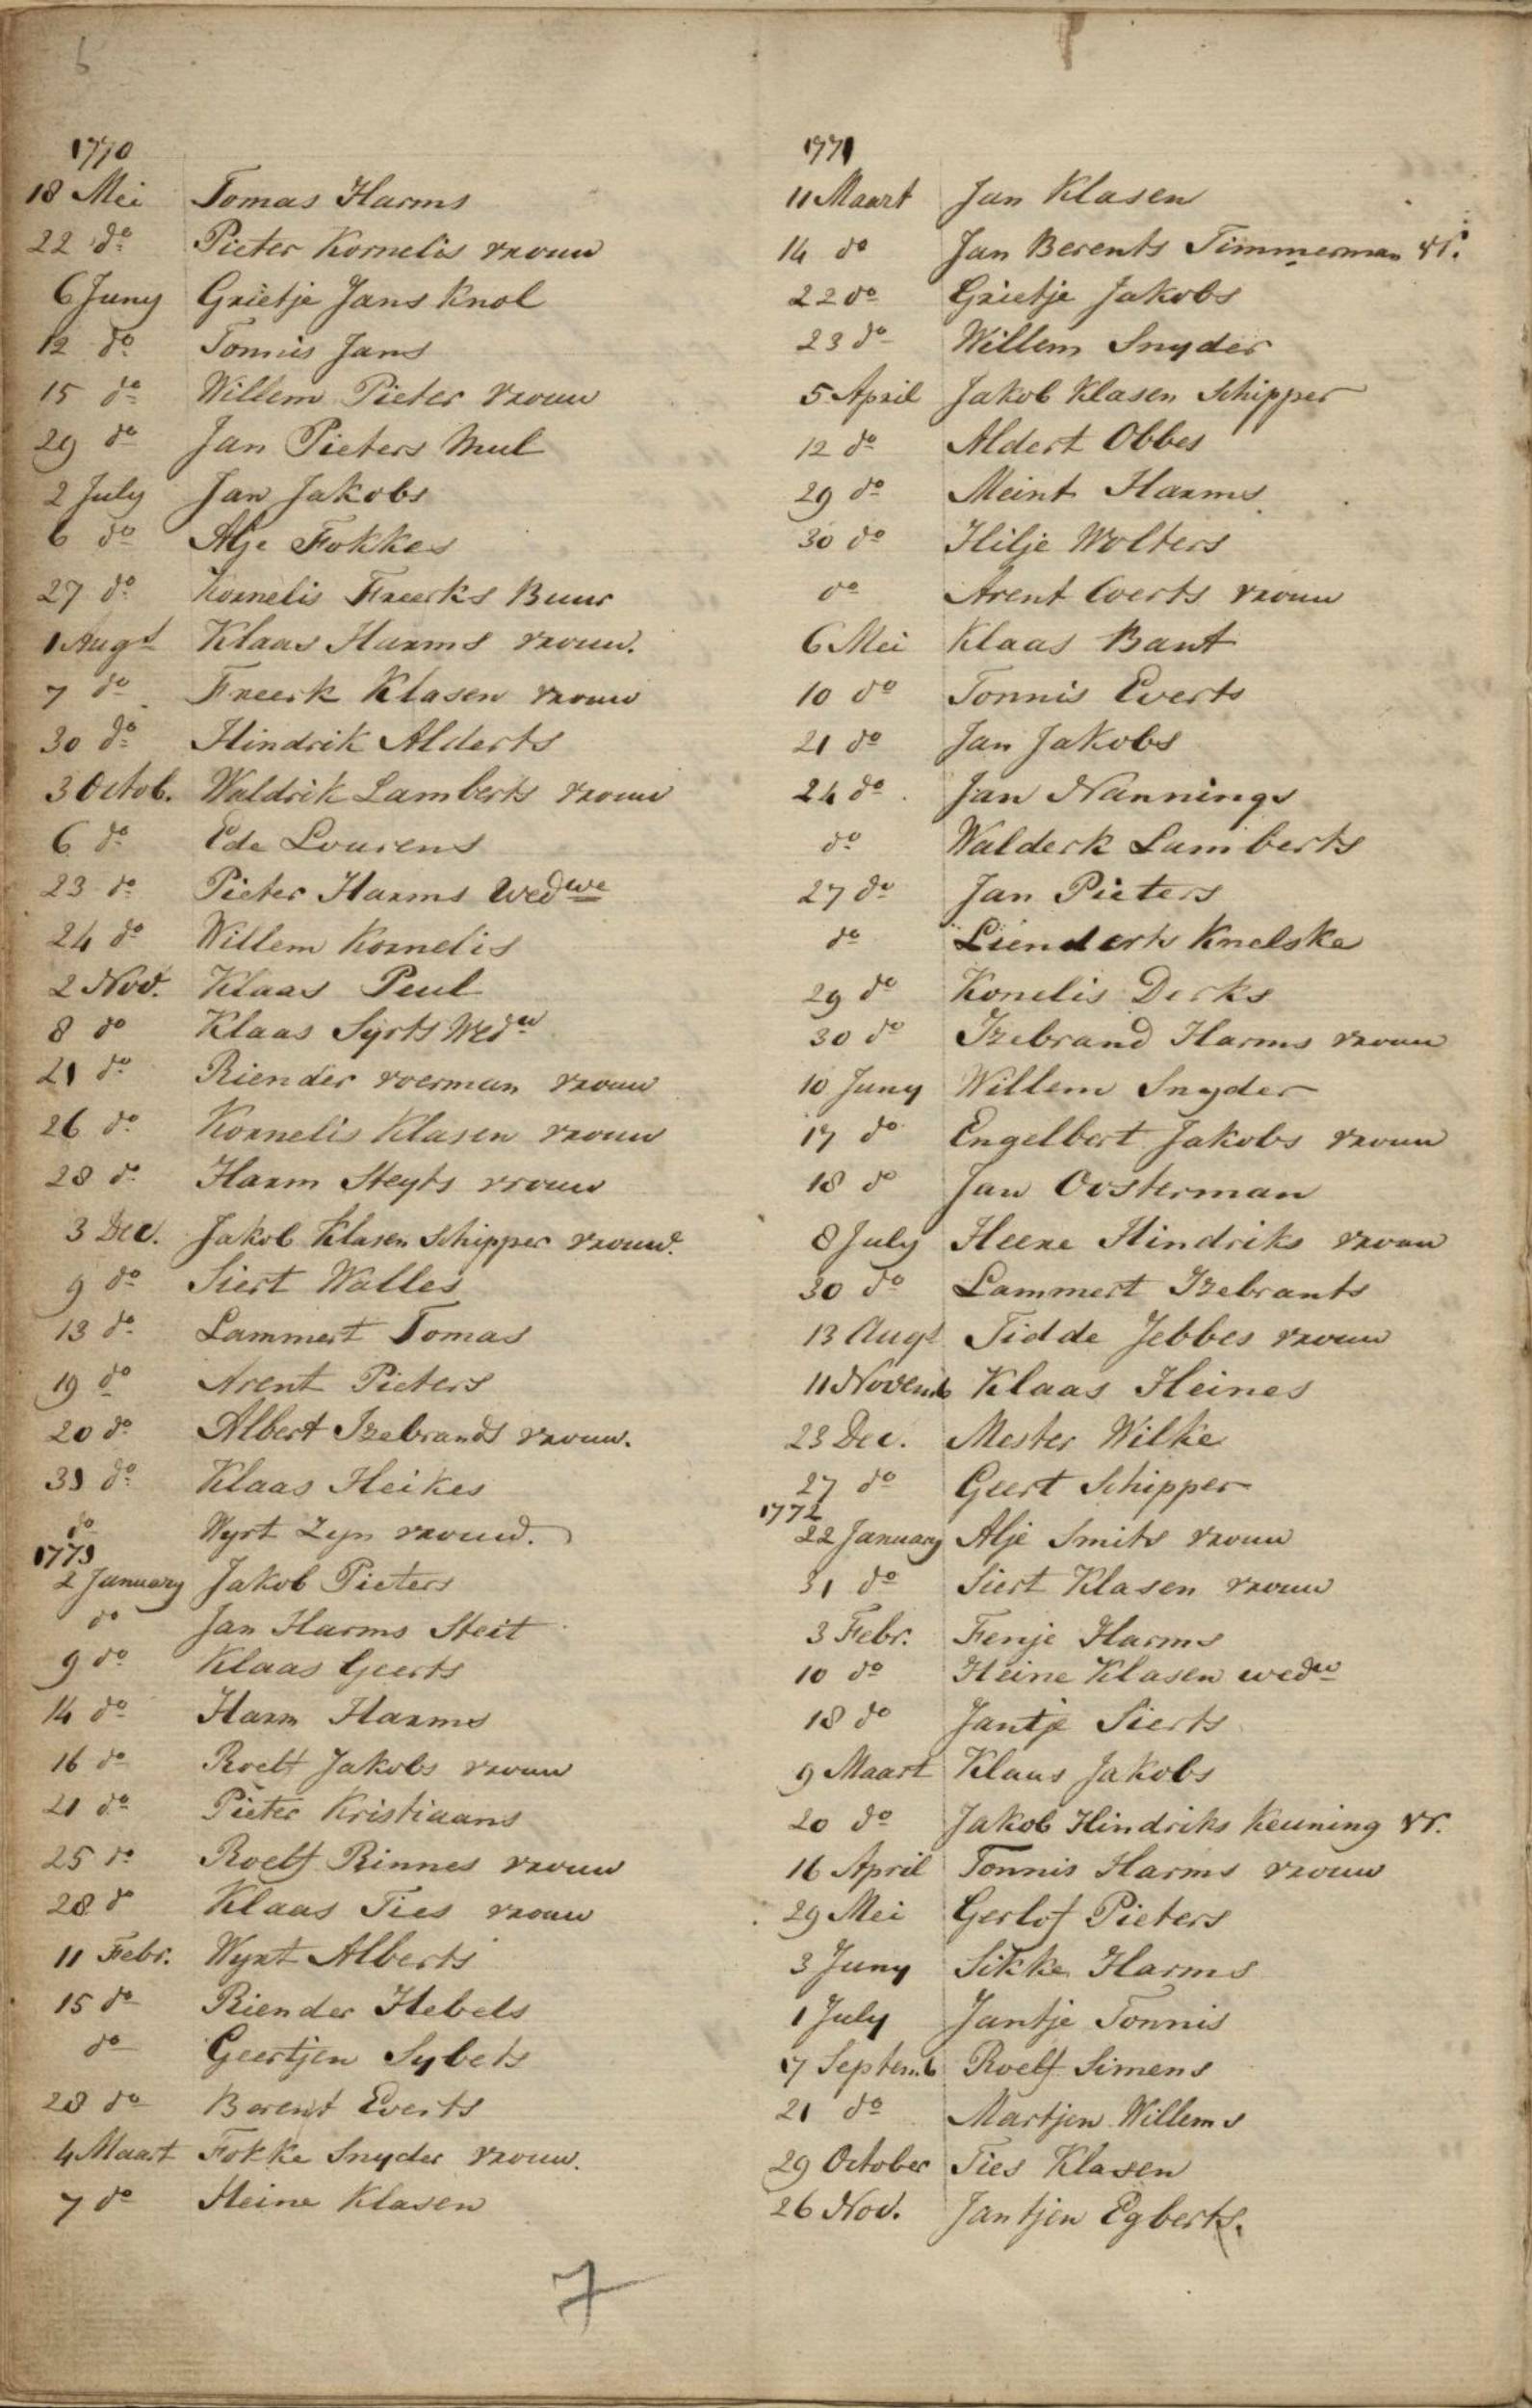 6
1770
18 Mei Tomas Harms
22 do Pieter Kornelis vrouw
6 Juny Grietje Jans Knol
12 do Tonnis Jans
15 do Willem Pieter vrouw
29 do Jan Pieters Mul
2 July Jan Jakobs
6 do Alje Fokkes
27 do Kornelis Freerks Buur
1 Augt Klaas Harms vrouw.
7 do Freerk Klasen vrouw
30 do Hindrik Alderts
3 Octob. Waldrik Lamberts vrouw
6 do Ede Lourens
23 do Pieter Harms Wedwe
24 do Willem Kornelis
2 Nov. Klaas Peul
8 do Klaas Syrts Wedw
21 do Riender voerman vrouw
26 do Kornelis Klasen vrouw
28 do Harm Steyts vrouw
3 Dec. Jakob Klasen Schipper vrouw.
9 do Siert Walles
13 do Lammert Tomas
19 do Arent Pieters
20 do Albert Izebrands vrouw.
31 do Klaas Heikes
do Wyrt Zyn vrouw.
1771
2 January Jakob Pieters
do Jan Harms Steit
9 do Klaas Geerts
14 do Harm Harms
16 do Roelf Jakobs vrouw
21 do Pieter Kristiaans
25 do Roelf Rinnes vrouw
28 do Klaas Ties vrouw
11 Febr. Wyrt Alberts
15 do Riender Hebels
do Geertjen Sybets
28 do Berent Everts
4 Maart Fokke Snyder vrouw.
7 do Heine Klasen
7
1771
11 Maart Jan Klasen
14 do Jan Berents Timmerman vr.
22 do Grietje Jakobs
23 do Willem Snyder
5 April Jakob Klasen Schipper
12 do Aldert Obbes
29 do Meint Harms
30 do Hilje Wolters
do Arent Everts vrouw
6 Mei Klaas Bant
10 do Tonnis Everts
21 do Jan Jakobs
24 do Jan Nannings
do Walderk Lamberts
27 do Jan Pieters
do Lienderts Knelske
29 do Konelis Derks
30 do Izebrand Harms vrouw
10 Juny Willem Snyder
17 do Engelbert Jakobs vrouw
18 do Jan Oosterman
8 July Heere Hindriks vrouw
30 do Lammert Izebrants
13 Augt Tidde Jebbes vrouw
11 Novemb Klaas Heines
23 Dec. Mester Wilke
27 do Geert Schipper
1772
22 January Alje Smits vrouw
31 do Siert Klasen vrouw
3 Febr. Fenje Harms
10 do Heine Klasen wedw
18 do Jantje Sierts
9 Maart Klaas Jakobs
20 do Jakob Hindriks Keuning vr.
16 April Tonnis Harms vrouw
29 Mei Gerlof Pieters
3 Juny Sikke Harms
1 July Jantje Tonnis
17 Septemb Roelf Simens
21 do Martjen Willems
29 October Ties Klasen
26 Nov. Jantjen Egberts.